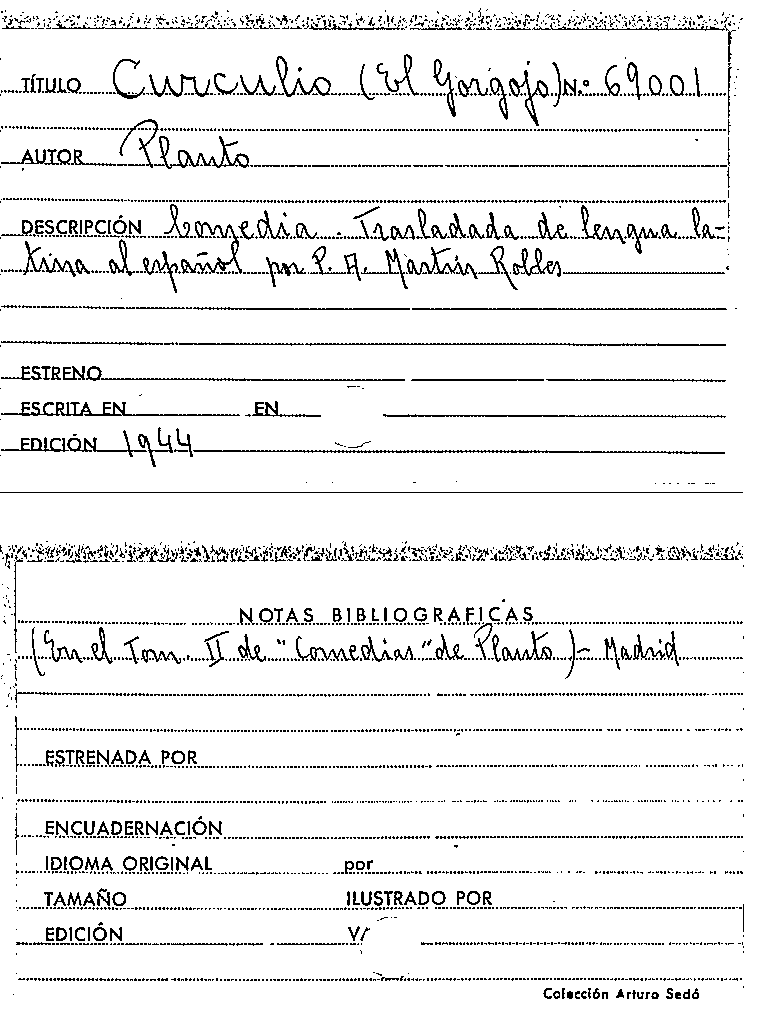 TÍTULO Curculio (El Gorgojo) N.º 69001
AUTOR Planto
DESCRIPCIÓN Comedia. Trasladada de lengua la-
tina al español por P. A. Martín Robles
ESTRENO
ESCRITA EN EN
EDICIÓN 1944
NOTAS BIBLIOGRAFICAS
(En el Tom. II de "Comedias" de Planto) - Madrid
ESTRENADA POR
ENCUADERNACIÓN
IDIOMA ORIGINAL por
TAMAÑO ILUSTRADO POR
EDICIÓN V/
Colección Arturo Sedó